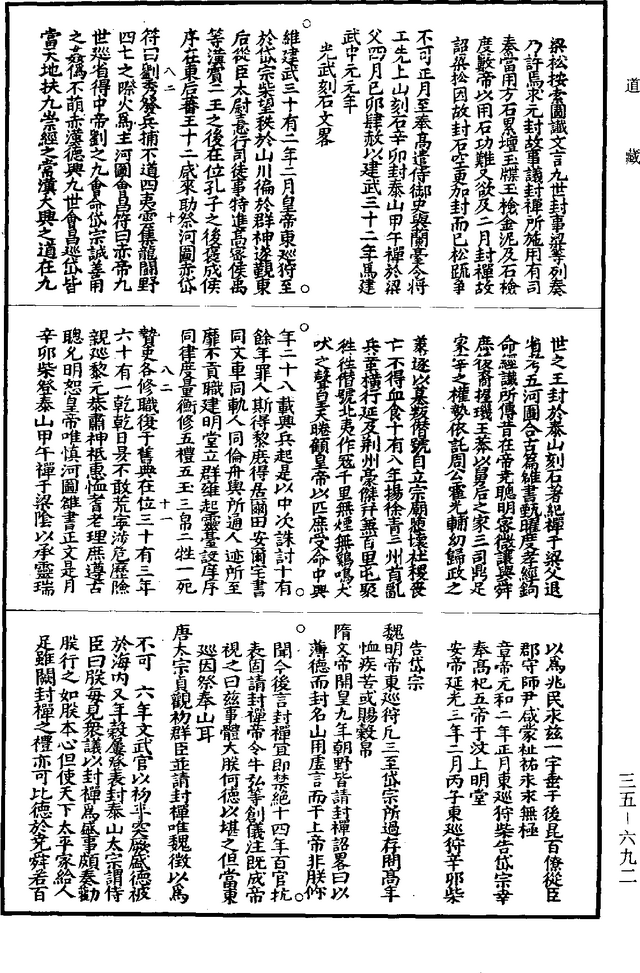 道藏
梁松按索圖讖文言九世封事梁等列奏
乃許焉求元封故事議封禪所施用有司
奏當用方石累壇玉牒玉檢金泥及石檢
度數帝以用石功難又欲及二月封禪故
詔梁松因故封石空更加封而已松疏爭
不可正月至奉高遣侍御史與蘭臺令將
工先上山刻石辛卯封泰山甲午禪於梁
父四月己卯肆赦以建武三十二年爲建
武中元元年
光武刻石文畧
維建武三十有二年二月皇帝東巡狩至
於岱宗柴望秩於山川徧於群神遂覲東
后從臣太尉憙行司徒事特進高密侯禹
等漢賓二王之後在位孔子之後褒成侯
序在東后蕃王十二咸來助祭河圖赤伏
八二 十
符曰劉秀發兵捕不道四夷雲集龍鬭野
四七之際火爲主河圖會昌符曰赤帝九
世巡省得中帝劉之九會命岱宗誠善用
之姦僞不萌赤漢德興九世會昌巡岱皆
當天地扶九崇經之常漢大興之道在九
世之王封於泰山刻石著紀禪于梁父退
省考五河圖合古篇雒書甄曜度孝經鉤
命經讖所傳昔在帝堯聰明密微讓與舜
庶後裔握機王莽以舅后之家三司鼎足
冢宰之權勢依託周公霍光輔幼歸政之
義遂以篡叛僭號自立宗廟隳壞社稷喪
亡不得血食十有八年揚徐青三州首亂
兵革橫行延及荆州豪傑并兼百里屯聚
往往僭號北夷作寇千里無煙無鷄鳴犬
吠之聲皇天睠顧皇帝以匹庶受命中興
年二十八載興兵起是以中次誅討十有
餘年罪人斯得黎庶得居爾田安爾宅書
同文車同軌人同倫舟輿所通人迹所至
靡不貢職建明堂立辟雍起靈臺設庠序
同律度量衡修五禮五玉三帛二牲一死
八二 十一
贄吏各修職復于舊典在位三十有三年
六十有一乾乾日昃不敢荒寧涉危歷險
親巡黎元恭肅神祇惠恤耆老理庶遵古
聰允明恕皇帝唯慎河圖雒書正文是月
辛卯柴登泰山甲午禪于梁陰以承靈瑞
以爲兆民永兹一宇垂于後昆百僚從臣
郡守師尹咸蒙祉祐永永無極
章帝元和二年正月東巡狩柴告岱宗幸
奉高祀五帝于汶上明堂
安帝延光三年二月丙子東巡狩辛卯柴
告岱宗
魏明帝東巡狩凡三至岱宗所過存問高年
恤疾苦或賜穀帛
隋文帝開皇九年朝野皆請封禪詔畧曰以
薄德而封名山用虛言而干上帝非朕攸
聞今後言封禪宜即禁絕十四年百官抗
表固請封禪帝令牛弘等創儀注既成帝
視之曰兹事體大朕何德以堪之但當東
巡因祭泰山耳
唐太宗貞觀初群臣並請封禪唯魏徵以爲
不可　六年文武官以初平突厥盛德被
於海内又年穀屢登表封泰山太宗謂侍
臣曰朕每見衆議以封禪爲盛事頻奏勸
朕行之如朕本心但使天下太平家給人
足雖闕封禪之禮亦可比德於堯舜若百
三五-六九二